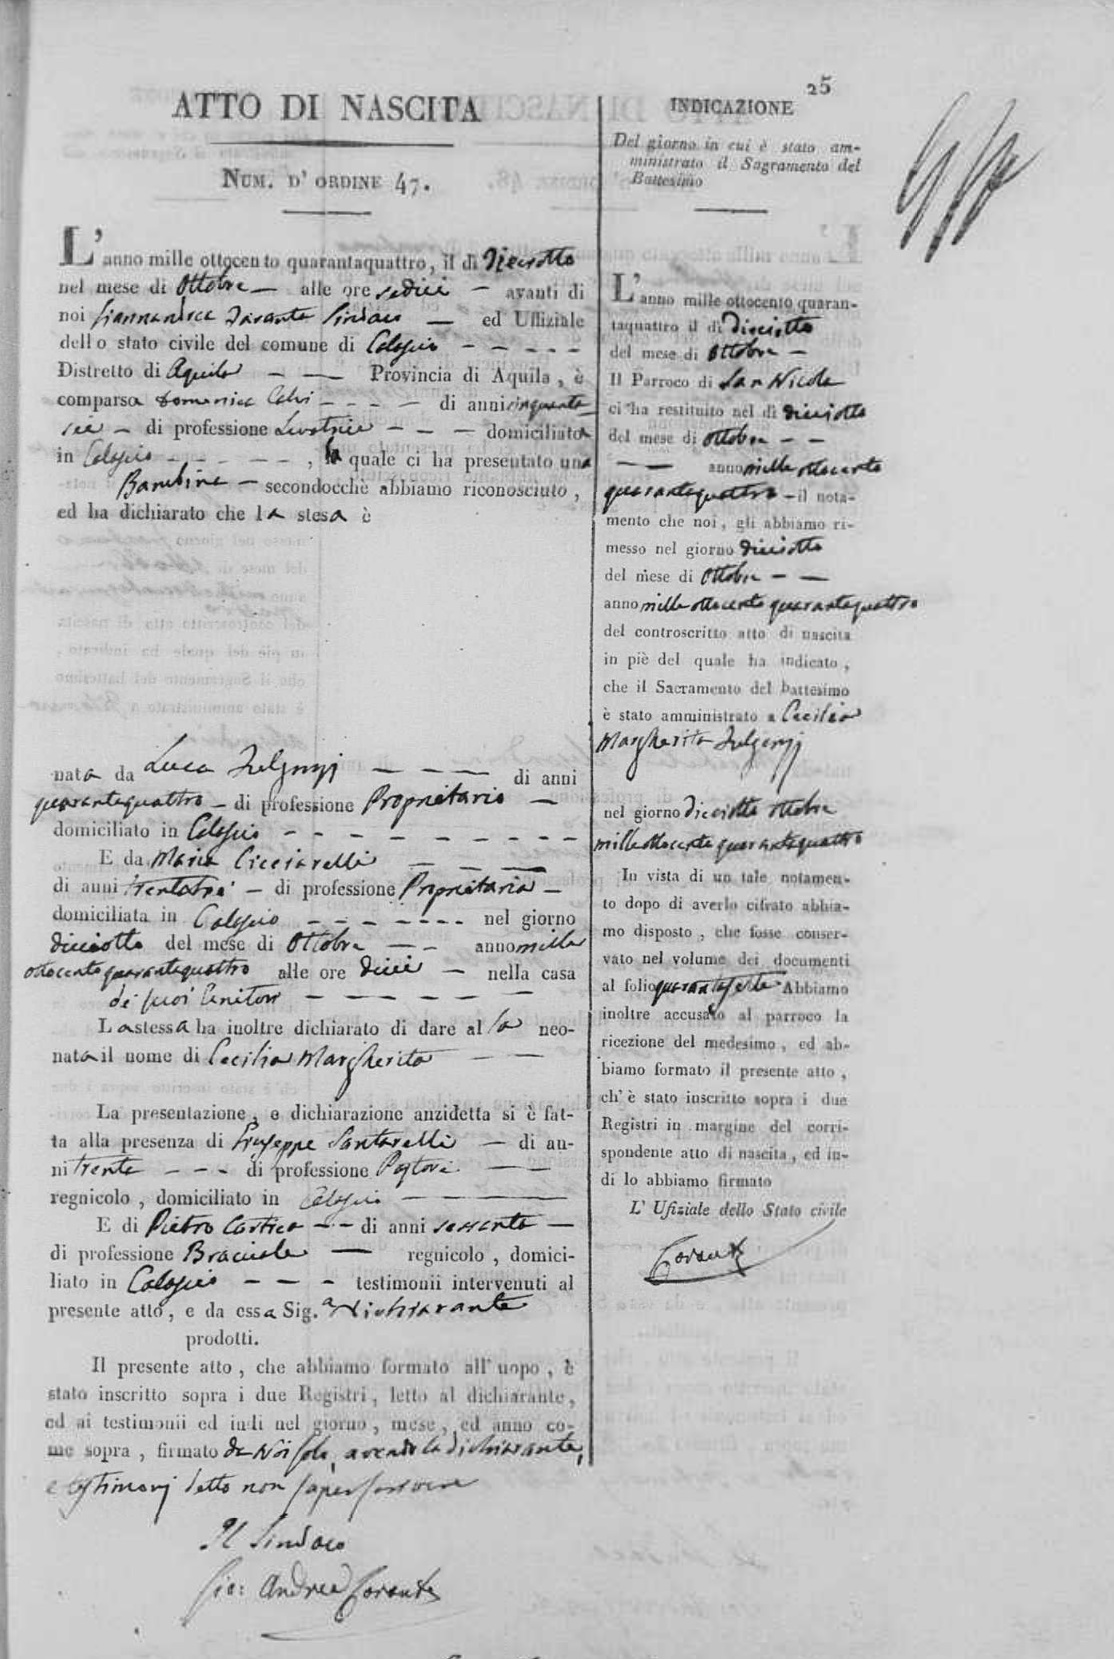 25
ATTO DI NASCITA
NUM. D' ORDINE 47.
L'anno mille ottocento quarantaquattro, il di Dieciotto
nel mese di Ottobre — alle ore sedici — avanti di
noi Giannandrea Sindaco — ed Uffiziale
dello stato civile del comune di Calascio - - - - -
Distretto di Aquila - — Provincia di Aquila, è
comparsa Domenica Calvi - - - — di anni cinquanta
sei — di professione Levatrice - - — domiciliata
in Calascio - - - - — , la quale ci ha presentato una
Bambina — secondocchè abbiamo riconosciuto,
ed ha dichiarato che la stesa è
nata da Luca Fulgenzj — - - — di anni
quarantaquattro — di professione Proprietario —
domiciliato in Calascio - - - - - - - - -
E da Maria Cicciarelli — — —
di anni trentatrè — di professione Proprietaria —
domiciliata in Calascio - - - - - - - nel giorno
dieciotto del mese di Ottobre — - anno mille
ottocento quarantaquattro alle ore dieci — nella casa
de' suoi Genitori — — — — — —
La stessa ha inoltre dichiarato di dare al la neo-
nata il nome di Cecilia Margherita — —
La presentazione, e dichiarazione anzidetta si è fat-
ta alla presenza di Giuseppe Santarelli — di an-
ni trenta - - - di professione Pastore — —
regnicolo, domiciliato in Calascio — — —
E di Pietro - - di anni sessanta —
di professione Braciale — regnicolo, domici-
liato in Calascio - - - testimonii intervenuti al
presente atto, e da essa Sig.a Dichiarante
prodotti.
Il presente atto, che abbiamo formato all' uopo, è
stato inscritto sopra i due Registri, letto al dichiarante,
ed ai testimonii ed indi nel giorno, mese, ed anno co-
me sopra, firmato da Noi solo, avendo la dichiarante,
e testimonj detto non saper scrivere
Il Sindaco
Gio: Andrea
INDICAZIONE
Del giorno in cui è stato am-
ministrato il Sagramento del
Battesimo
L'anno mille ottocento quaran-
taquattro il di dieciotto
del mese di Ottobre —
Il Parroco di San Nicola
ci ha restituito nel dì dieciotto
del mese di ottobre - —
— — anno mille ottocento
quarantaquattro — il nota-
mento che noi, gli abbiamo ri-
messo nel giorno dieciotto
del mese di Ottobre - —
anno mille ottocento quarantaquattro
del controscritto atto di nascita
in piè del quale ha indicato,
che il Sacramento del battesimo
è stato amministrato a Cecilia
Margherita Fulgenzj
nel giorno dieciotto ottobre
mille ottocento quarantaquattro
In vista di un tale notamen-
to dopo di averlo cifrato abbia-
mo disposto, che fosse conser-
vato nel volume dei documenti
al folio quarantasette Abbiamo
inoltre accusato al parroco la
ricezione del medesimo, ed ab-
biamo formato il presente atto,
ch' è stato inscritto sopra i due
Registri in margine del corri-
spondente atto di nascita, ed in-
di lo abbiamo firmato
L' Ufiziale dello Stato civile